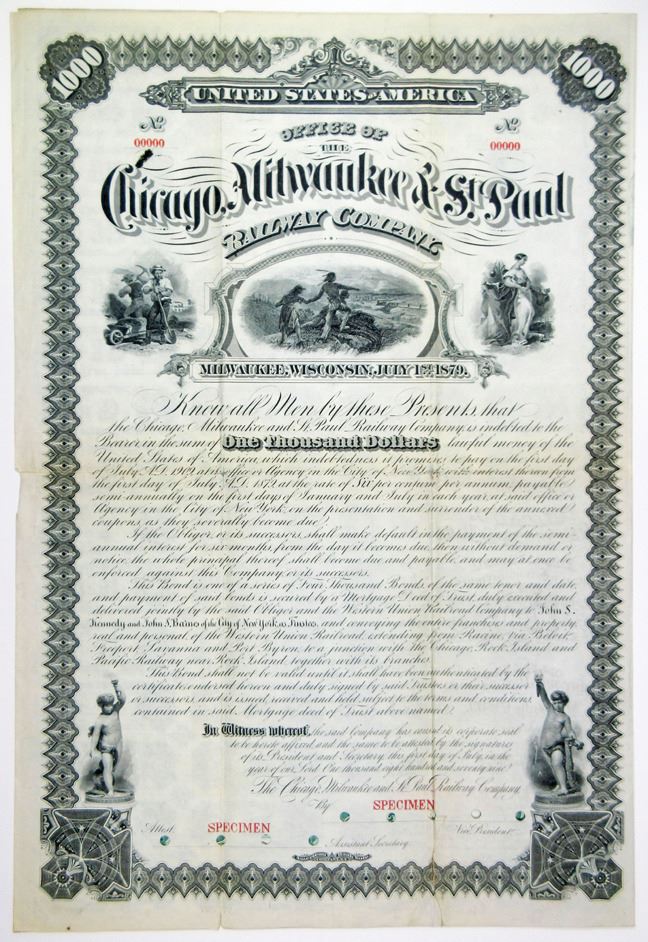 1000
1000
UNITED STATES OF AMERICA
No
No
00000
00000
OFFICE OF
THE
Chicago, Milwaukee & St. Paul
RAILWAY COMPANY.
MILWAUKEE, WISCONSIN, JULY 1st 1879.
Know all Men by these Presents, that
the Chicago, Milwaukee and St. Paul Railway Company, is indebted to the
Bearer in the sum of One Thousand Dollars lawful money of the
United States of America, which indebtedness it promises to pay on the first day
of July A.D. 1909 at its office or Agency in the City of New York with interest thereon from
the first day of July A.D. 1879 at the rate of Six per centum per annum, payable
semi-annually on the first days of January and July in each year, at said office or
Agency in the City of New York on the presentation and surrender of the annexed
coupons as they severally become due.
If the Obligor, or its successors, shall make default in the payment of the semi-
annual interest for six months, from the day it becomes due, then without demand or
notice, the whole principal thereof shall become due and payable, and may at once be
enforced against this Company or its successors.
This Bond is one of a series of Four Thousand Bonds of the same tenor and date
and payment of said Bonds is secured by a Mortgage Deed of Trust, duly executed and
delivered jointly by the said Obligor and the Western Union Railroad Company to John S.
Kennedy and John S. Barnes of the City of New York as Trustees, and conveying the entire franchises and property,
real and personal of the Western Union Railroad, extending from Racine, via Beloit,
Freeport, Savanna and Port Byron, to a junction with the Chicago, Rock Island and
Pacific Railway near Rock Island, together with its branches.
This Bond shall not be valid until it shall have been authenticated by the
certificate endorsed hereon and duly signed by said Trustees or their successor
or successors, and is issued received and held subject to the terms and conditions
contained in said Mortgage deed of Trust above named.
In Witness whereof, the said Company has caused its corporate seal
to be hereto affixed and the same to be attested by the signatures
of its President and Secretary, this first day of July, in the
year of our Lord One thousand eight hundred and seventy nine.
The Chicago, Milwaukee and St. Paul Railway Company
By SPECIMEN
Vice President
Attest SPECIMEN
Assistant Secretary.